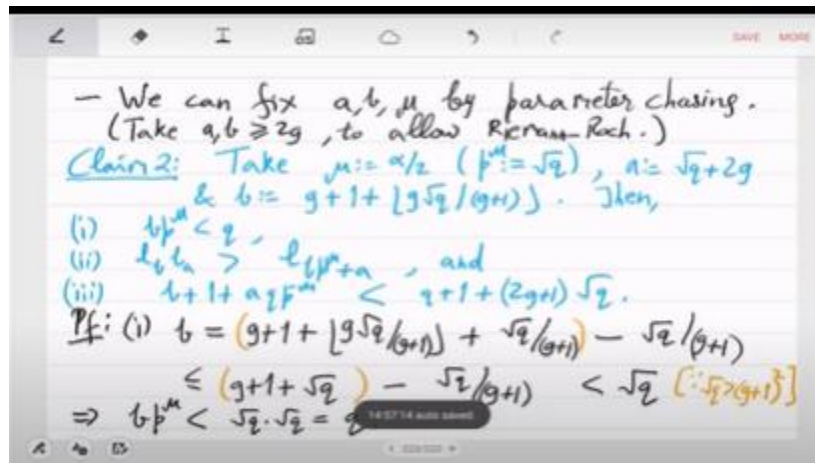 SAVE MORE
— We can fix a, b, μ by parameter chasing.
(Take a,b ≥ 2g, to allow Riemann-Roch.)
Claim 2: Take μ := α/2 (p^μ := √q), a := √q + 2g
& b := g+1+ ⌊g√q/(g+1)⌋. Then,
(i) bp^μ < q,
(ii) l_b l_a > l_{bp^μ+a}, and
(iii) b+1+ aqp^{-μ} < q+1+(2g+1)√q.
Pf: (i) b = (g+1+ ⌊g√q/(g+1)⌋ + √q/(g+1)) − √q/(g+1)
≤ (g+1+√q) − √q/(g+1) < √q [∵ √q>(g+1)²]
⇒ bp^μ < √q.√q = q
14:57:14 auto saved